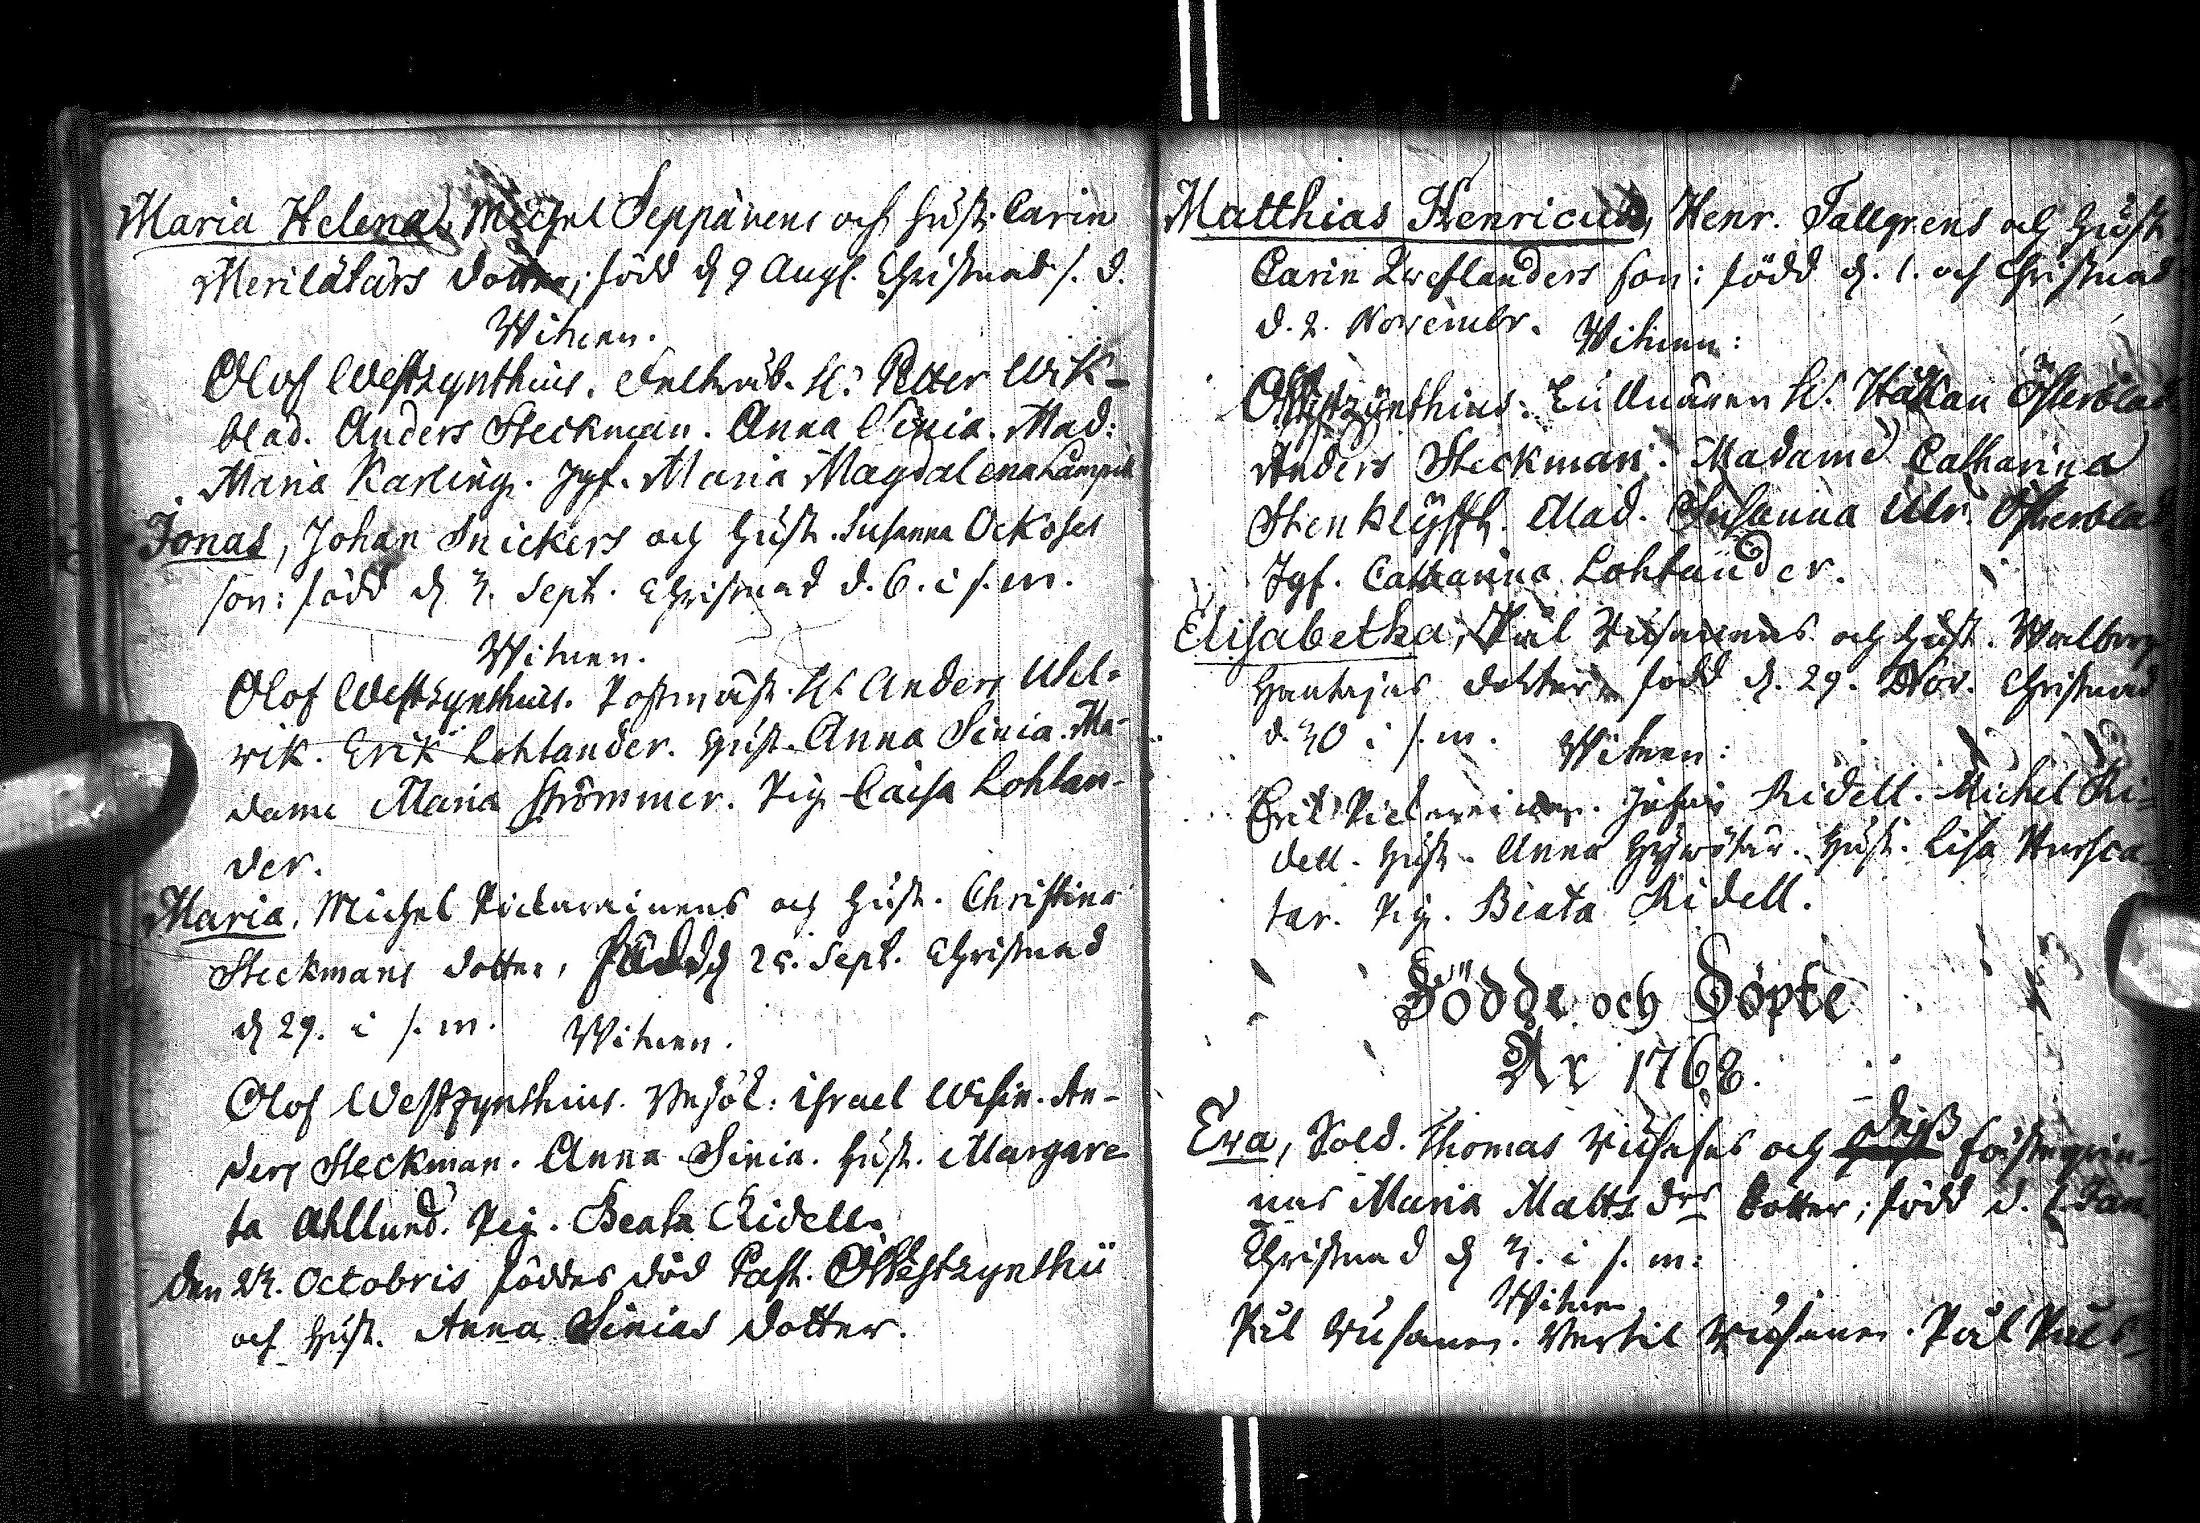 Maria Helena, Michel Seppänens och Hust. Carin
Merilätärs dotter; född d 9 Aug. Christnad s. d.
Witnen.
Olof Westzynthius. H: Petter Wik-
blad. Anders Steckman. Anna Sinia. Mad:
Maria Karling. Jgf. Maria Magdalena
Jonas, Johan Snickers och Hust. Susanna Ockoses
son: född d 3. Sept. Christnad d. 6. i s. m.
Witnen.
Olof Westzynthius. Postmäst. H. Anders Uhl-
wik. Erik Lohlander. Hust. Anna Sinia. Ma-
dame Maria Strömmer. Pig. Caisa Lohlan-
der.
Maria, Michel och Hust. Christina
Steckmans dotter, född d 25. Sept. Christnad
d 29. i s. m. Witnen.
Olof Westzynthius. Israel An-
ders Steckman. Anna Sinia. Hust. Margare-
ta Ahllund. Pig. Beata Ridell.
den 23. Octobris föddes död Past. O Westzynthii
och Hust. Anna Sinias dotter.
Matthias Henricus, Henr. Tallgrens och Hust.
Carin son: född d. 1. och Christnad
d. 2. Novembr. Witnen:
O Westzynthius. H. Håkan Österblad
Anders Steckman. Madame Catharina
Mad. Susanna Ulr. Österblad
Jgf. Catharina Lohlander.
Elisabetha, Pål och Hust. Walborg
dotter född d. 29. Nov. Christnad
d. 30 i s. m. Witnen:
Erik Johan Ridell. Michel Ri-
dell. Hust. Anna Hust. Lisa
tar. Pig. Beata Ridell.
Födde och Döpte
År 1768.
Eva, Sold. Thomas och deß
Maria Matts drs dotter; född d. 1. Jan.
Christnad d 3. i s. m:
Witnen
Pål Bertil Pål